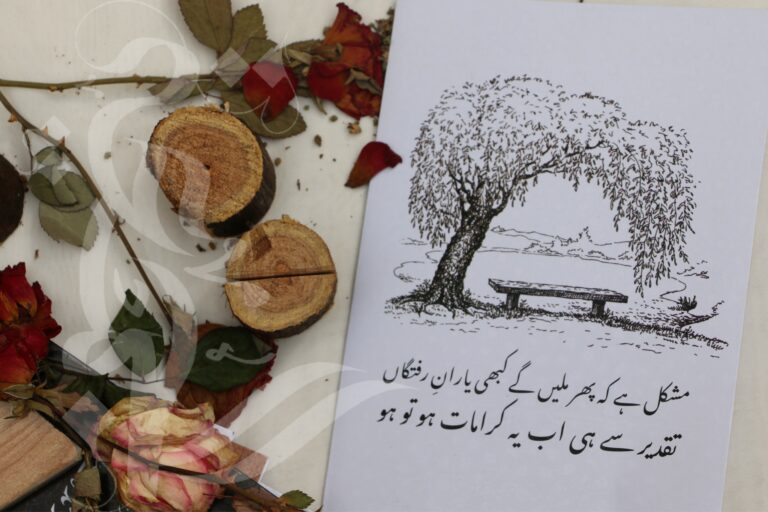 مشکل ہے کہ پھر ملیں گے کبھی یارانِ رفتگاں
تقدیر سے ہی اب یہ کرامات ہو تو ہو